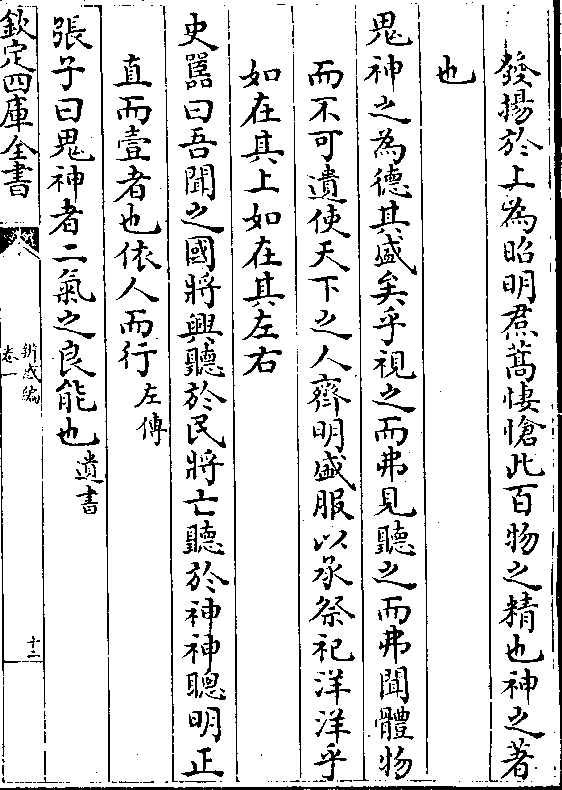 發揚於上為昭明焄蒿悽愴此百物之精也神之著
也
鬼神之為德其盛矣乎視之而弗見聽之而弗聞體物
而不可遺使天下之人齊明盛服以承祭祀洋洋乎
如在其上如在其左右
史嚚曰吾聞之國將興聽於民將亡聽於神神聰明正
直而壹者也依人而行左傳
張子曰鬼神者二氣之良能也遺書
欽定四庫全書
辨惑編
卷一
十二